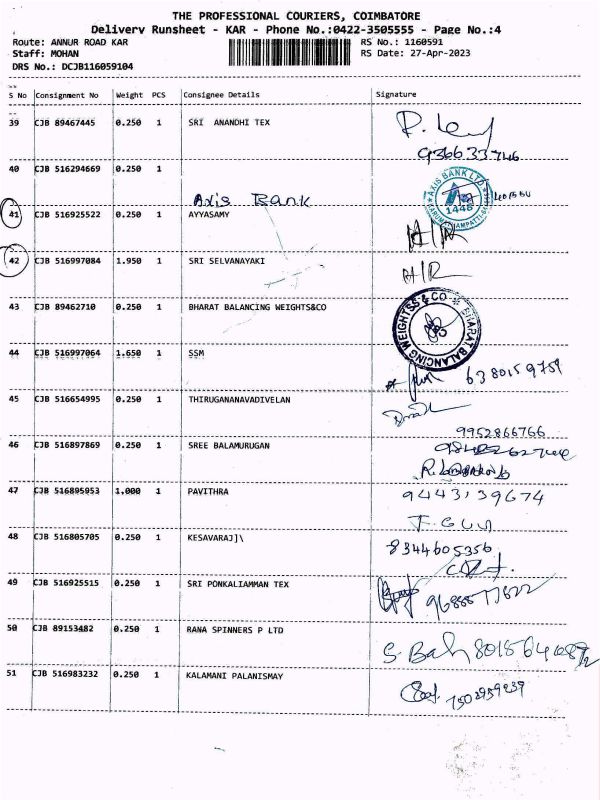 THE PROFESSIONAL COURIERS, COIMBATORE
Delivery Runsheet - KAR - Phone No.:0422-3505555 - Page No.:4
Route: ANNUR ROAD KAR RS No.: 1160591
Staff: MOHAN RS Date: 27-Apr-2023
DRS No.: DCJB116059104
S No Consignment No Weight PCS Consignee Details Signature
39 CJB 89467445 0.250 1 SRI ANANDHI TEX
40 CJB 516294669 0.250 1
Axis Bank
AXIS BANK LTD
1446
41 CJB 516925522 0.250 1 AYYASAMY
A/R
42 CJB 516997084 1.950 1 SRI SELVANAYAKI
A/R
43 CJB 89462710 0.250 1 BHARAT BALANCING WEIGHTS&CO
BHARAT BALANCING WEIGHTSS & CO
44 CJB 516997064 1.650 1 SSM
6380159759
45 CJB 516654995 0.250 1 THIRUGANANAVADIVELAN
9952866766
46 CJB 516897869 0.250 1 SREE BALAMURUGAN
47 CJB 516895953 1.000 1 PAVITHRA
9443139674
48 CJB 516805705 0.250 1 KESAVARAJ]\
8344605356
49 CJB 516925515 0.250 1 SRI PONKALIAMMAN TEX
50 CJB 89153482 0.250 1 RANA SPINNERS P LTD
51 CJB 516983232 0.250 1 KALAMANI PALANISMAY
7502959239